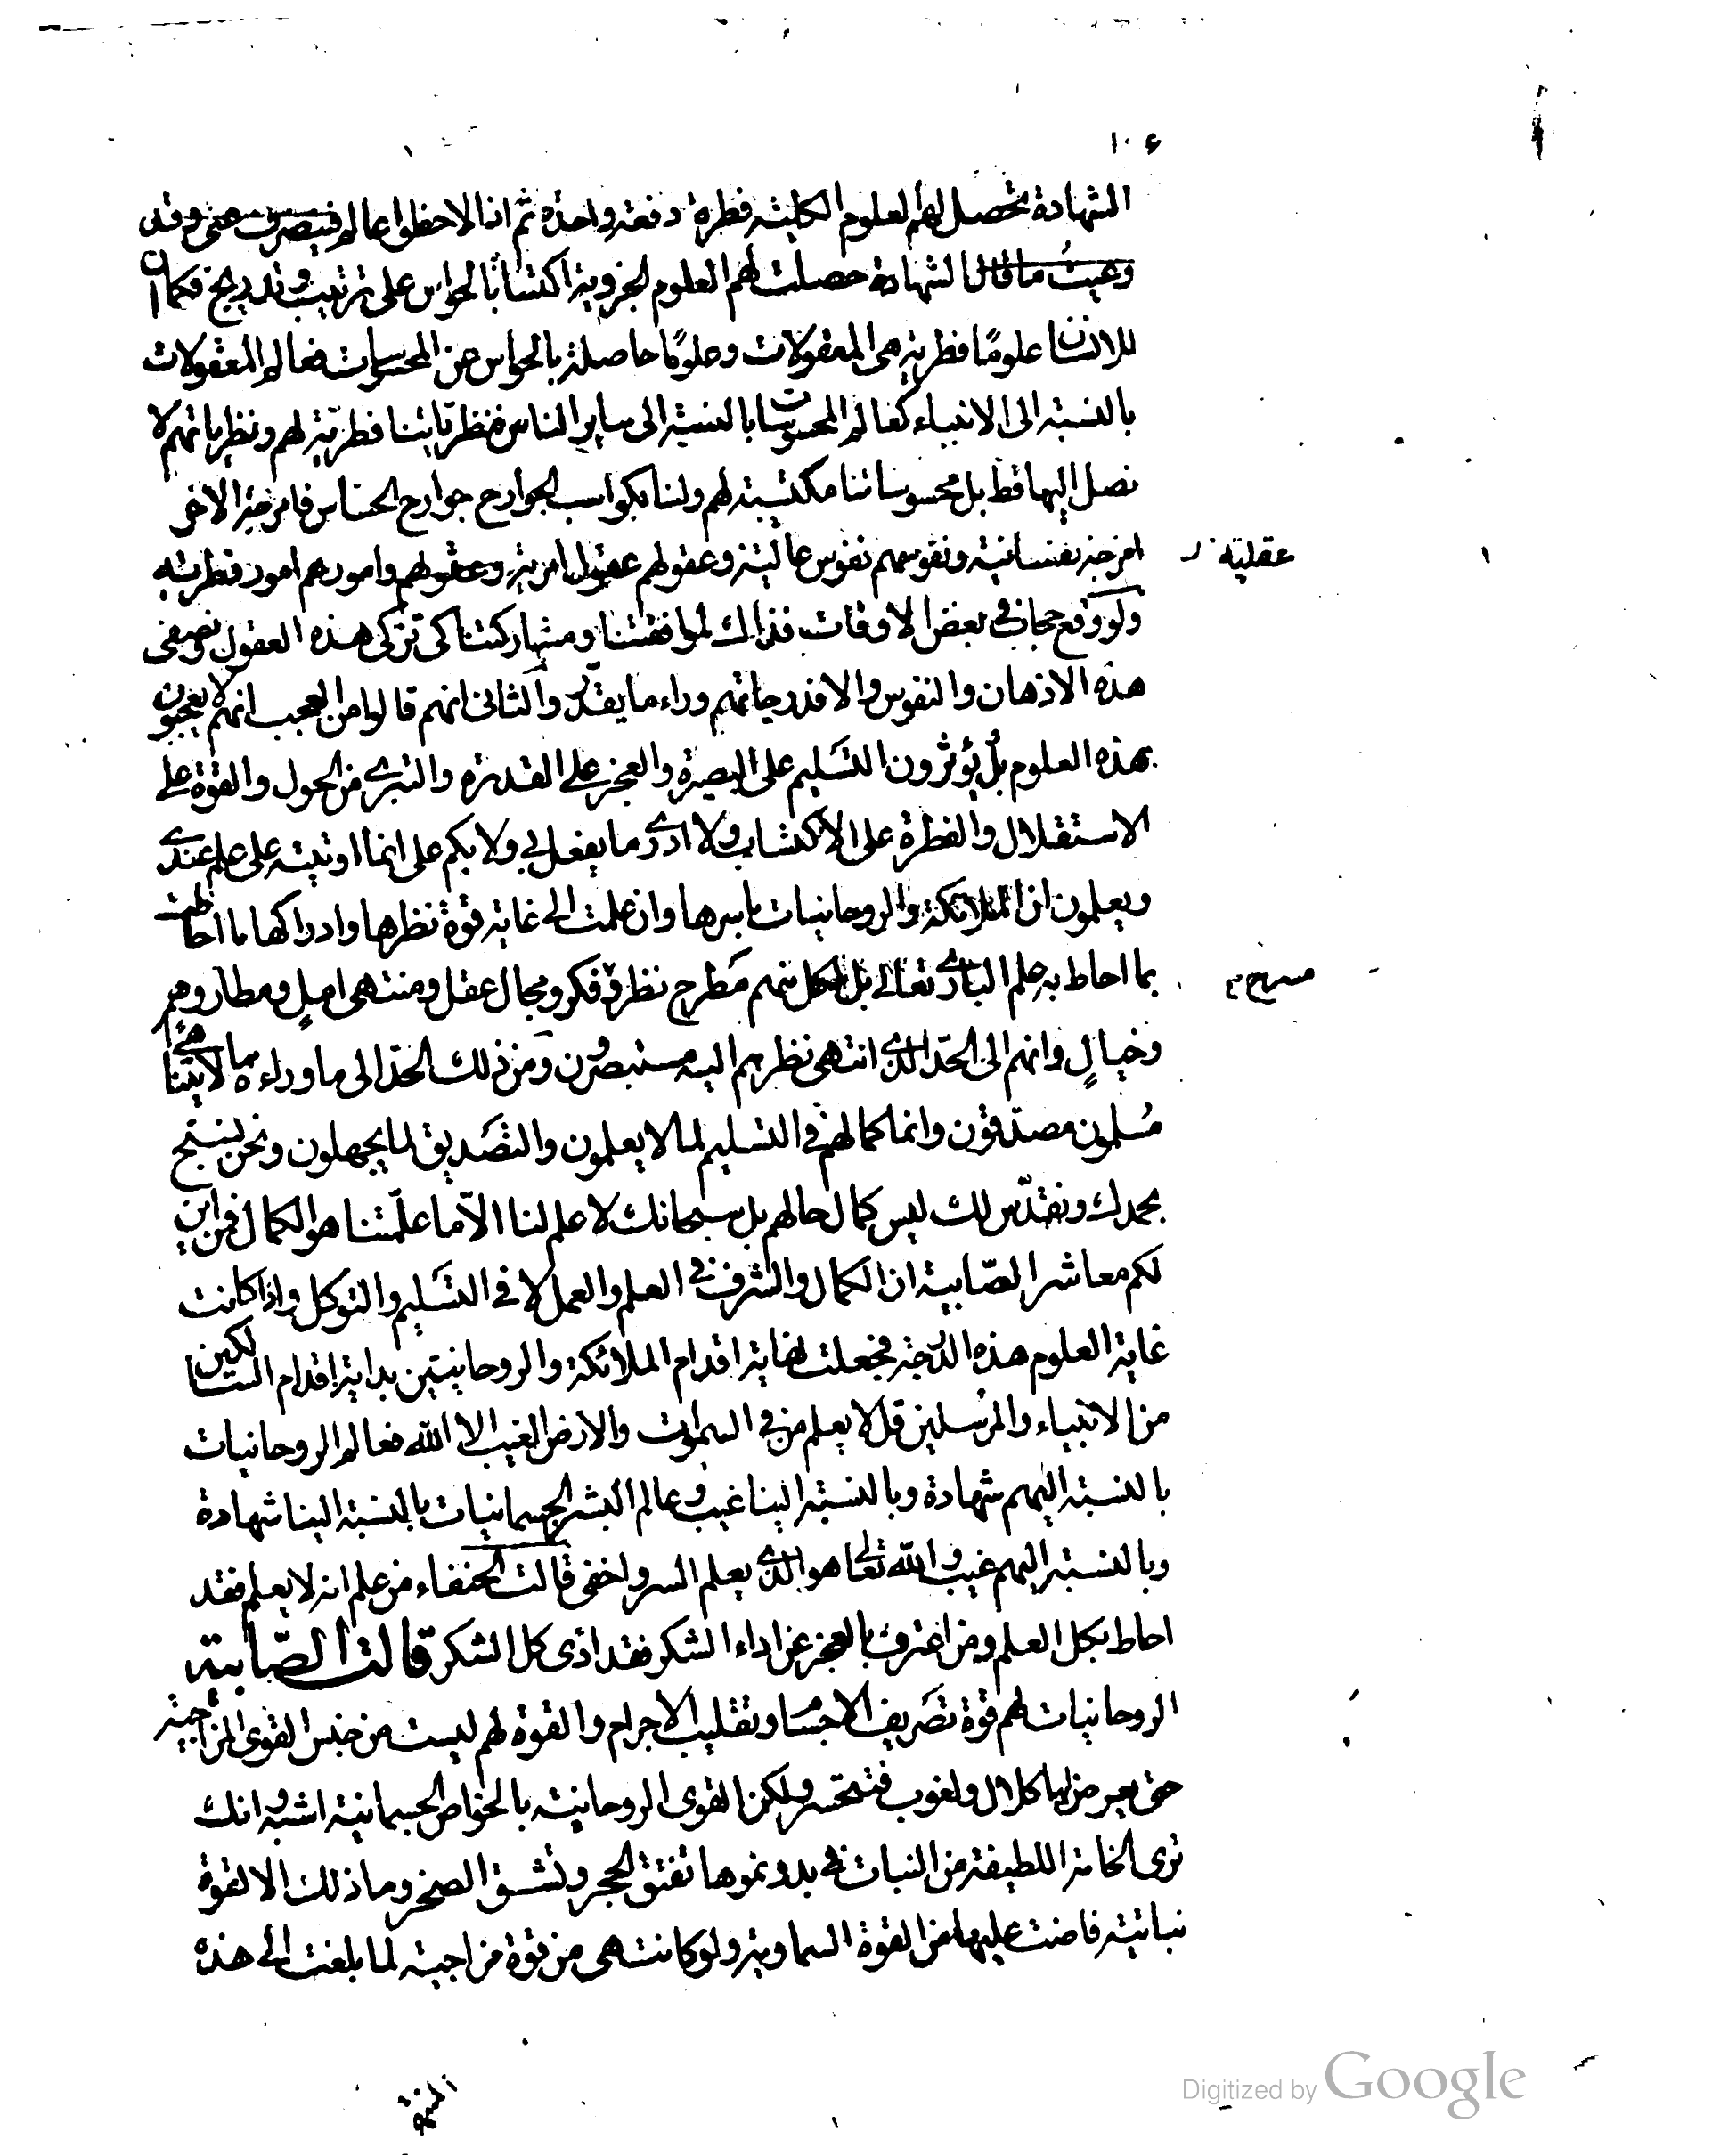 ١٠٤
الشهادة تحصل لهم العلوم الكلية فطرة دفعة واحدة ثم اذا لاحظوا عالم فيتصرف حتى وقد
وعيتُ ما قال الشهادة حصلت لهم العلوم الجزوية اكتسابًا بالحواس على ترتيب وتدريج فكما ان
للانسان علومًا فطرية هى المعقولات وعلومًا حاصلة بالحواس هن المحسوسات فعالم المعقولات
بالنسبة الى الانبياء كعالم المحسوسات بالنسبة الى ساير الناس فنظرياتنا فطرية لهم ونظرياتهم لا
نصل اليها قط بل محسوساتنا مكتسبة لهم ولنا بكواسب الجوارح جوارح الحساس فامزجة الاخر
امزجة نفسانية ونفوسهم نفوس عالية وعقولهم عقول امرية وعقولهم وامورهم امور فطرية
عقلية
ولو وقع حجاب في بعض الاوقات فذلك لموافقتنا ومشاركتنا كى تزكى هذه العقول وتصفى
هذه الاذهان والنفوس والا فدرجاتهم وراء ما يقدّر والثانى انهم قالوا من العجب انهم لا يعجبون
بهذه العلوم بل يؤثرون التسليم على البصيرة والعجز على القدرة والتبرى من الحول والقوة على
الاستقلال والفطرة على الاكتساب ولا ادرى ما يفعل بى ولا بكم على انما اوتيته على علم عندى
ويعلمون ان الملائكة والروحانيات باسرها وان علمت الى غاية قوة نظرها وادراكها ما احاطت
بما احاط به علم البارى تعالى بل لكل منهم مطرح نظر وفكر ومجال عقل ومنتهى امل ومطار وهم
مسرح
وخيال وانهم الى الحد الذى انتهى نظرهم اليه مستبصرون ومن ذلك الحد الى ما وراءه مما لا يتناهى
مُسلمون مصدقون وانما كمالهم فى التسليم لما لا يعلمون والتصديق لما يجهلون ونحن نسبح
بحمدك ونقدّس لك ليس كمال حالهم بل سبحانك لا علم لنا الّا ما علّمتنا هو الكمال فمن اين
لكم معاشر الصّابية ان الكمال والشرف فى العلم والعمل لا فى التسليم والتوكل واذا كانت
غاية العلوم هذه الدرجة فجعلت نهاية اقدام الملائكة والروحانيين بداية اقدام السالكين
من الانبياء والمرسلين قل لا يعلم من في السموات والارض الغيب الا الله فعالم الروحانيات
بالنسبة اليهم شهادة وبالنسبة الينا غيب وعالم البشر الجسمانيات بالنسبة الينا شهادة
وبالنسبة اليهم غيب والله تعالى هو الذى يعلم السر واخفى قالت الحنفاء من علم انه لا يعلم فقد
احاط بكل العلم ومن اعترف بالعجز عن اداء الشكر فقد ادى كل الشكر قالت الصّابية
الروحانيات لهم قوة تصريف الاجسام وتقليب الاجرام والقوة لهم ليست من جنس القوى المزاجية
حتى يعرض لها كلال ولغوب فتنحسر ولكن القوى الروحانية بالخواص الجسمانية اشبه وانك
ترى الخامة اللطيفة من النبات فى بدو نموها تفتق الحجر وتشق الصخر وما ذلك الا لقوة
نباتية فاضت عليها من القوة السماوية ولو كانت هى من قوة مزاجية لما بلغت الى هذه
Digitized by Google